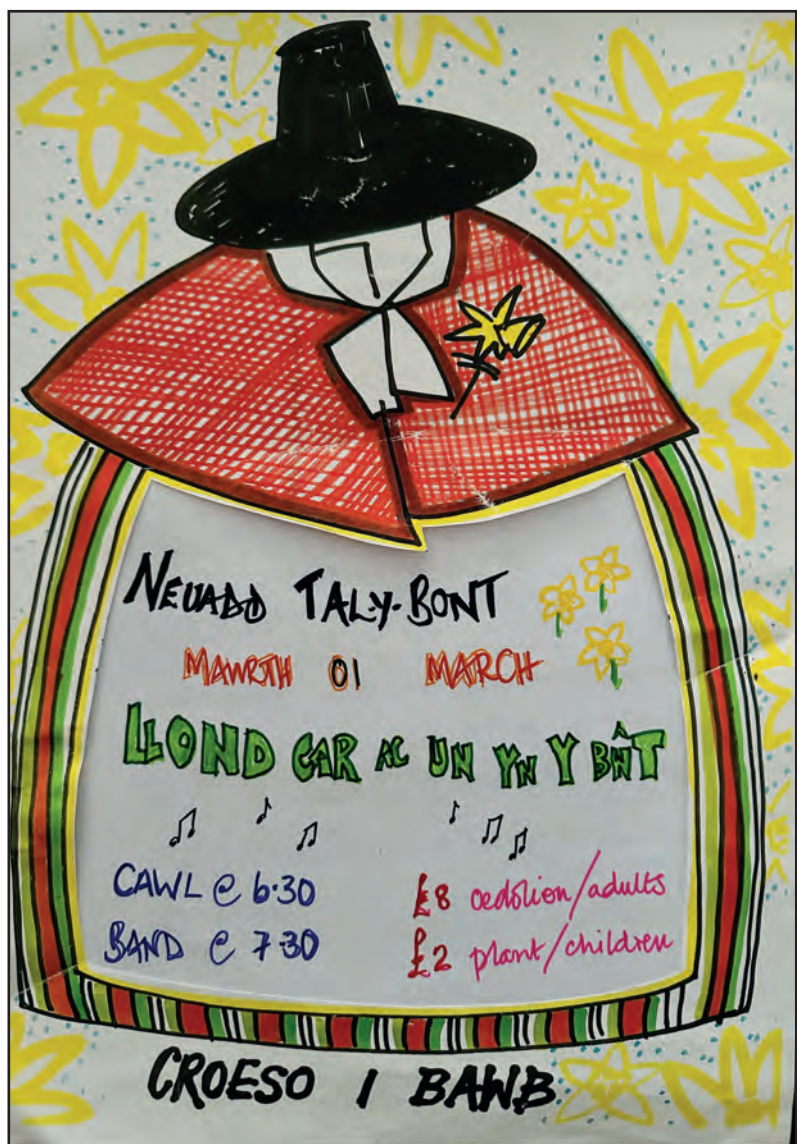 NEUADD TAL-Y-BONT
MAWRTH 01 MARCH
LLOND CAR AC UN YN Y BŴT
CAWL @ 6.30 £8 oedolion/adults
BAND @ 7.30 £2 plant/children
CROESO I BAWB